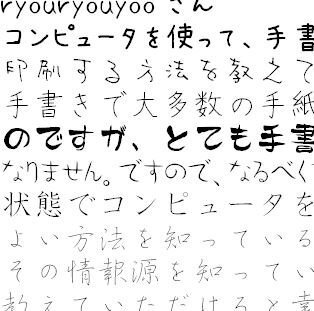 ryouryouyoo さん
コンピュータを使って、手書
印刷する方法を教えて
手書きで大多数の手紙
のですが、とても手書
なりません。ですので、なるべく
状態でコンピュータを
よい方法を知っている
その情報源を知ってい
教えていただけると幸